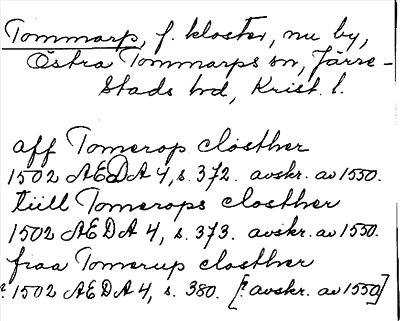 Tommarp, f. kloster, nu by,
Östra Tommarps sn, Järre-
stads hd, Krist. l.
aff Tomerop closther
1502 AEDA 4, s. 372. avskr. av 1550.
tiill Tomerops closther
1502 AEDA 4, s. 373. avskr. av 1550.
fraa Tomerup closther
1502 AEDA 4, s. 380. [? avskr. av 1550]